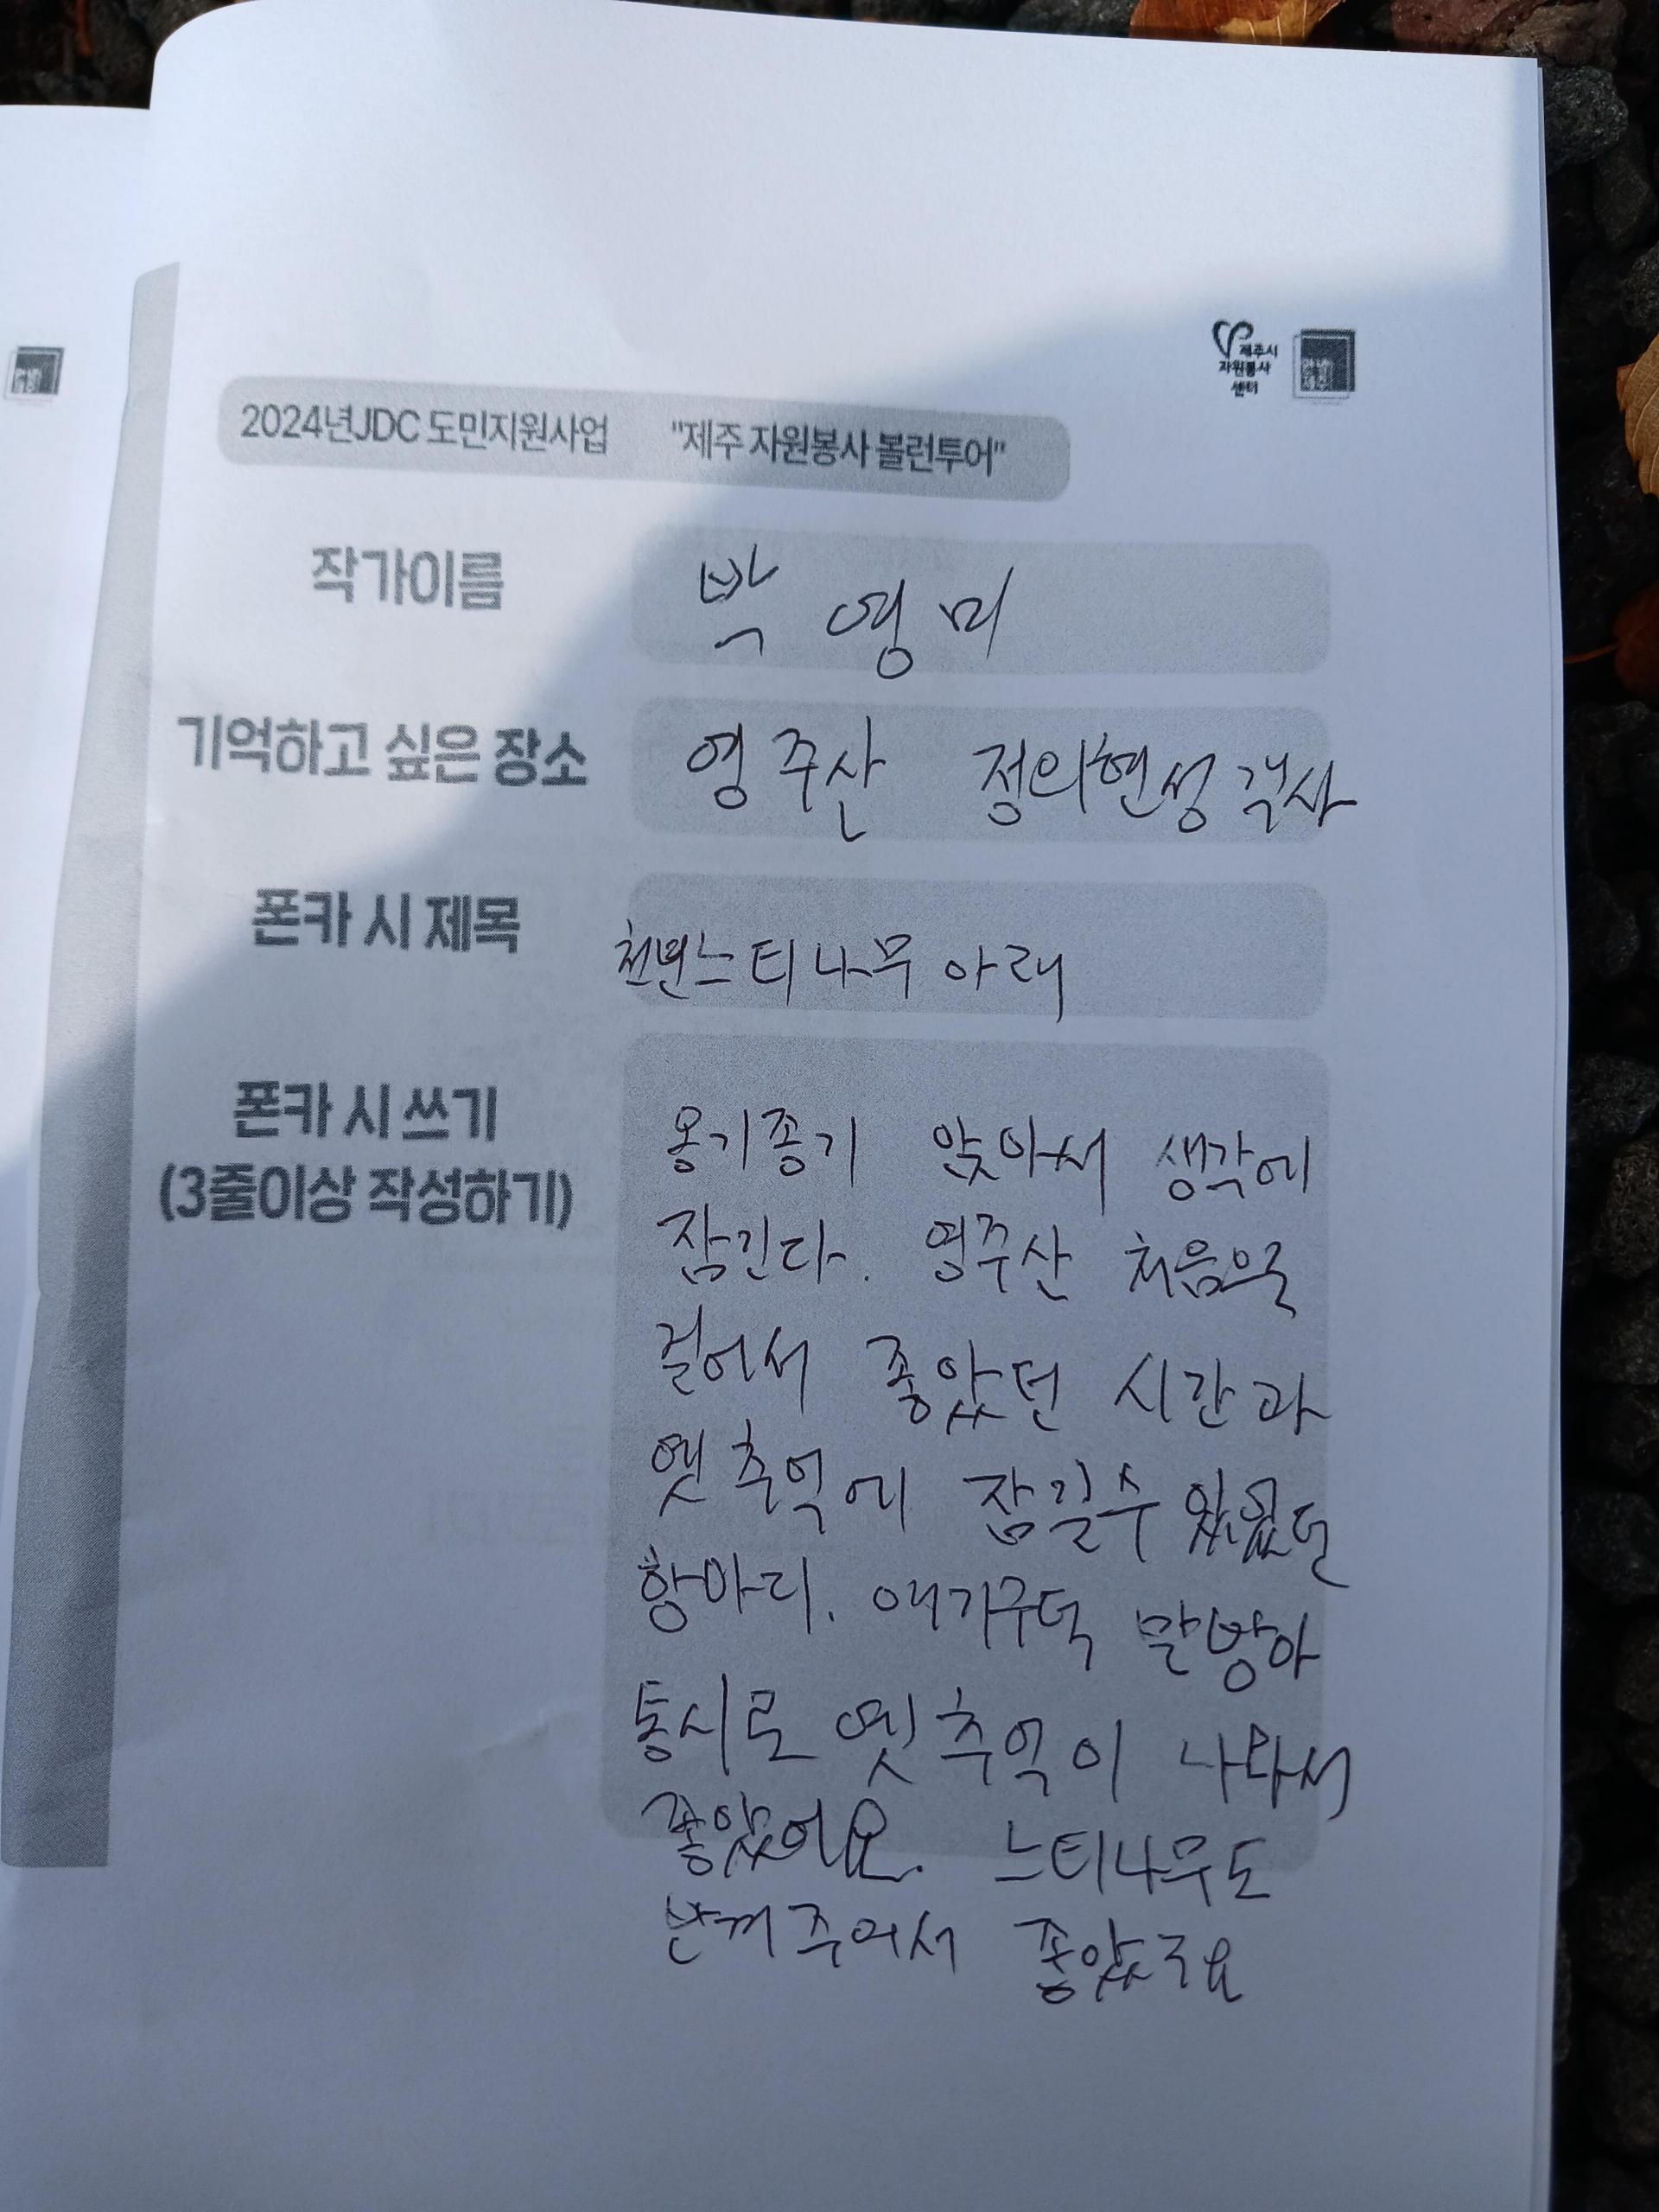 제주시
자원봉사
센터
2024년JDC 도민지원사업 "제주 자원봉사 볼런투어"
작가이름 박영미
기억하고 싶은 장소 영주산 정의현성 객사
폰카 시 제목 천년느티나무 아래
폰카 시 쓰기
(3줄이상 작성하기)
옹기종기 앉아서 생각에
잠긴다. 영주산 처음으로
걸어서 좋았던 시간과
옛추억에 잠길수 있었던
항아리. 애기구덕 말방아
통시로 옛추억이 나와서
좋았어요. 느티나무도
반겨주어서 좋았구요